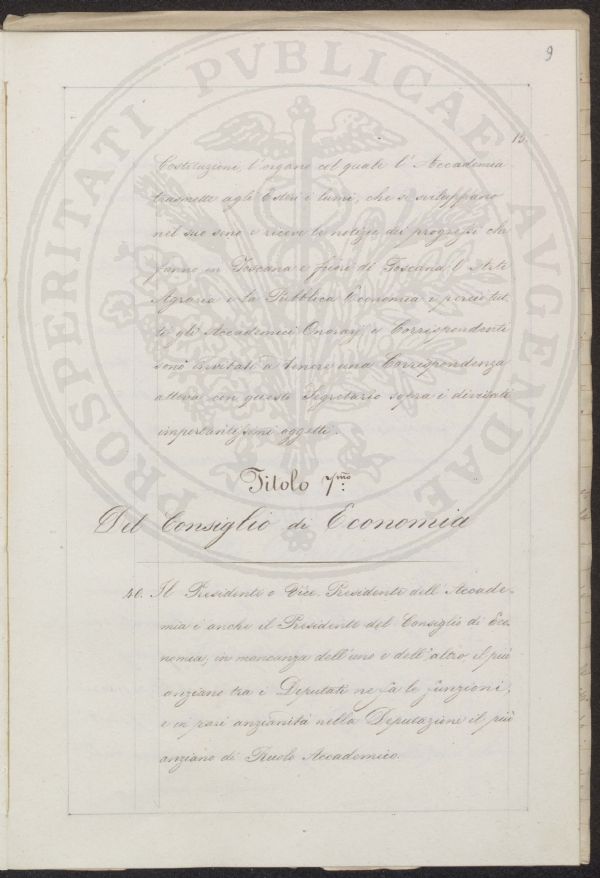 9
15.
Costituzioni, l'organo col quale l'Accademia
trasmette agli Esteri i lumi, che si sviluppano
nel suo seno e riceve le notizie dei progressi che
fanno in Toscana e fuori di Toscana l'Arte
Agraria e la Pubblica Economia e perciò tut-
ti gli Accademici Onorarj e Corrispondenti
sono invitati a tenere una Corrispondenza
attiva con questo Segretario sopra i divisati
importantissimi oggetti.
Titolo 7.mo
Del Consiglio di Economia
40. Il Presidente o Vice-Presidente dell'Accade-
mia è anche il Presidente del Consiglio di Eco-
nomia, in mancanza dell'uno e dell'altro il più
anziano tra i Deputati ne fa le funzioni,
e in pari anzianità nella Deputazione il più
anziano di Ruolo Accademico.
PROSPERITATI PVBLICAE AVGENDAE